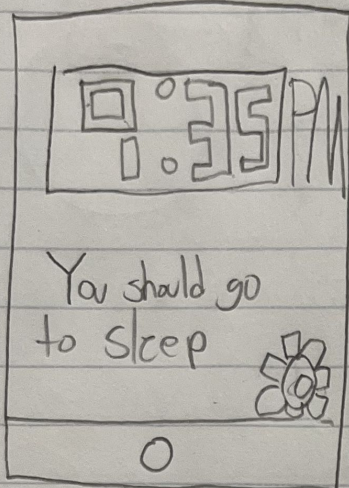 9:35 PM
You should go
to sleep